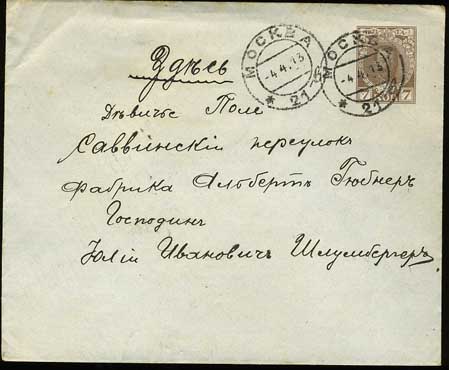 МОСКВА
-4.4.13
21
МОСКВА
-4.4.13
21
7 КОП 7
Здѣсь
Дѣвичье Поле
Саввинскій переулокъ
Фабрика Альбертъ Гюбнеръ
Господинъ
Юлій Ивановичъ Шлумбергеръ